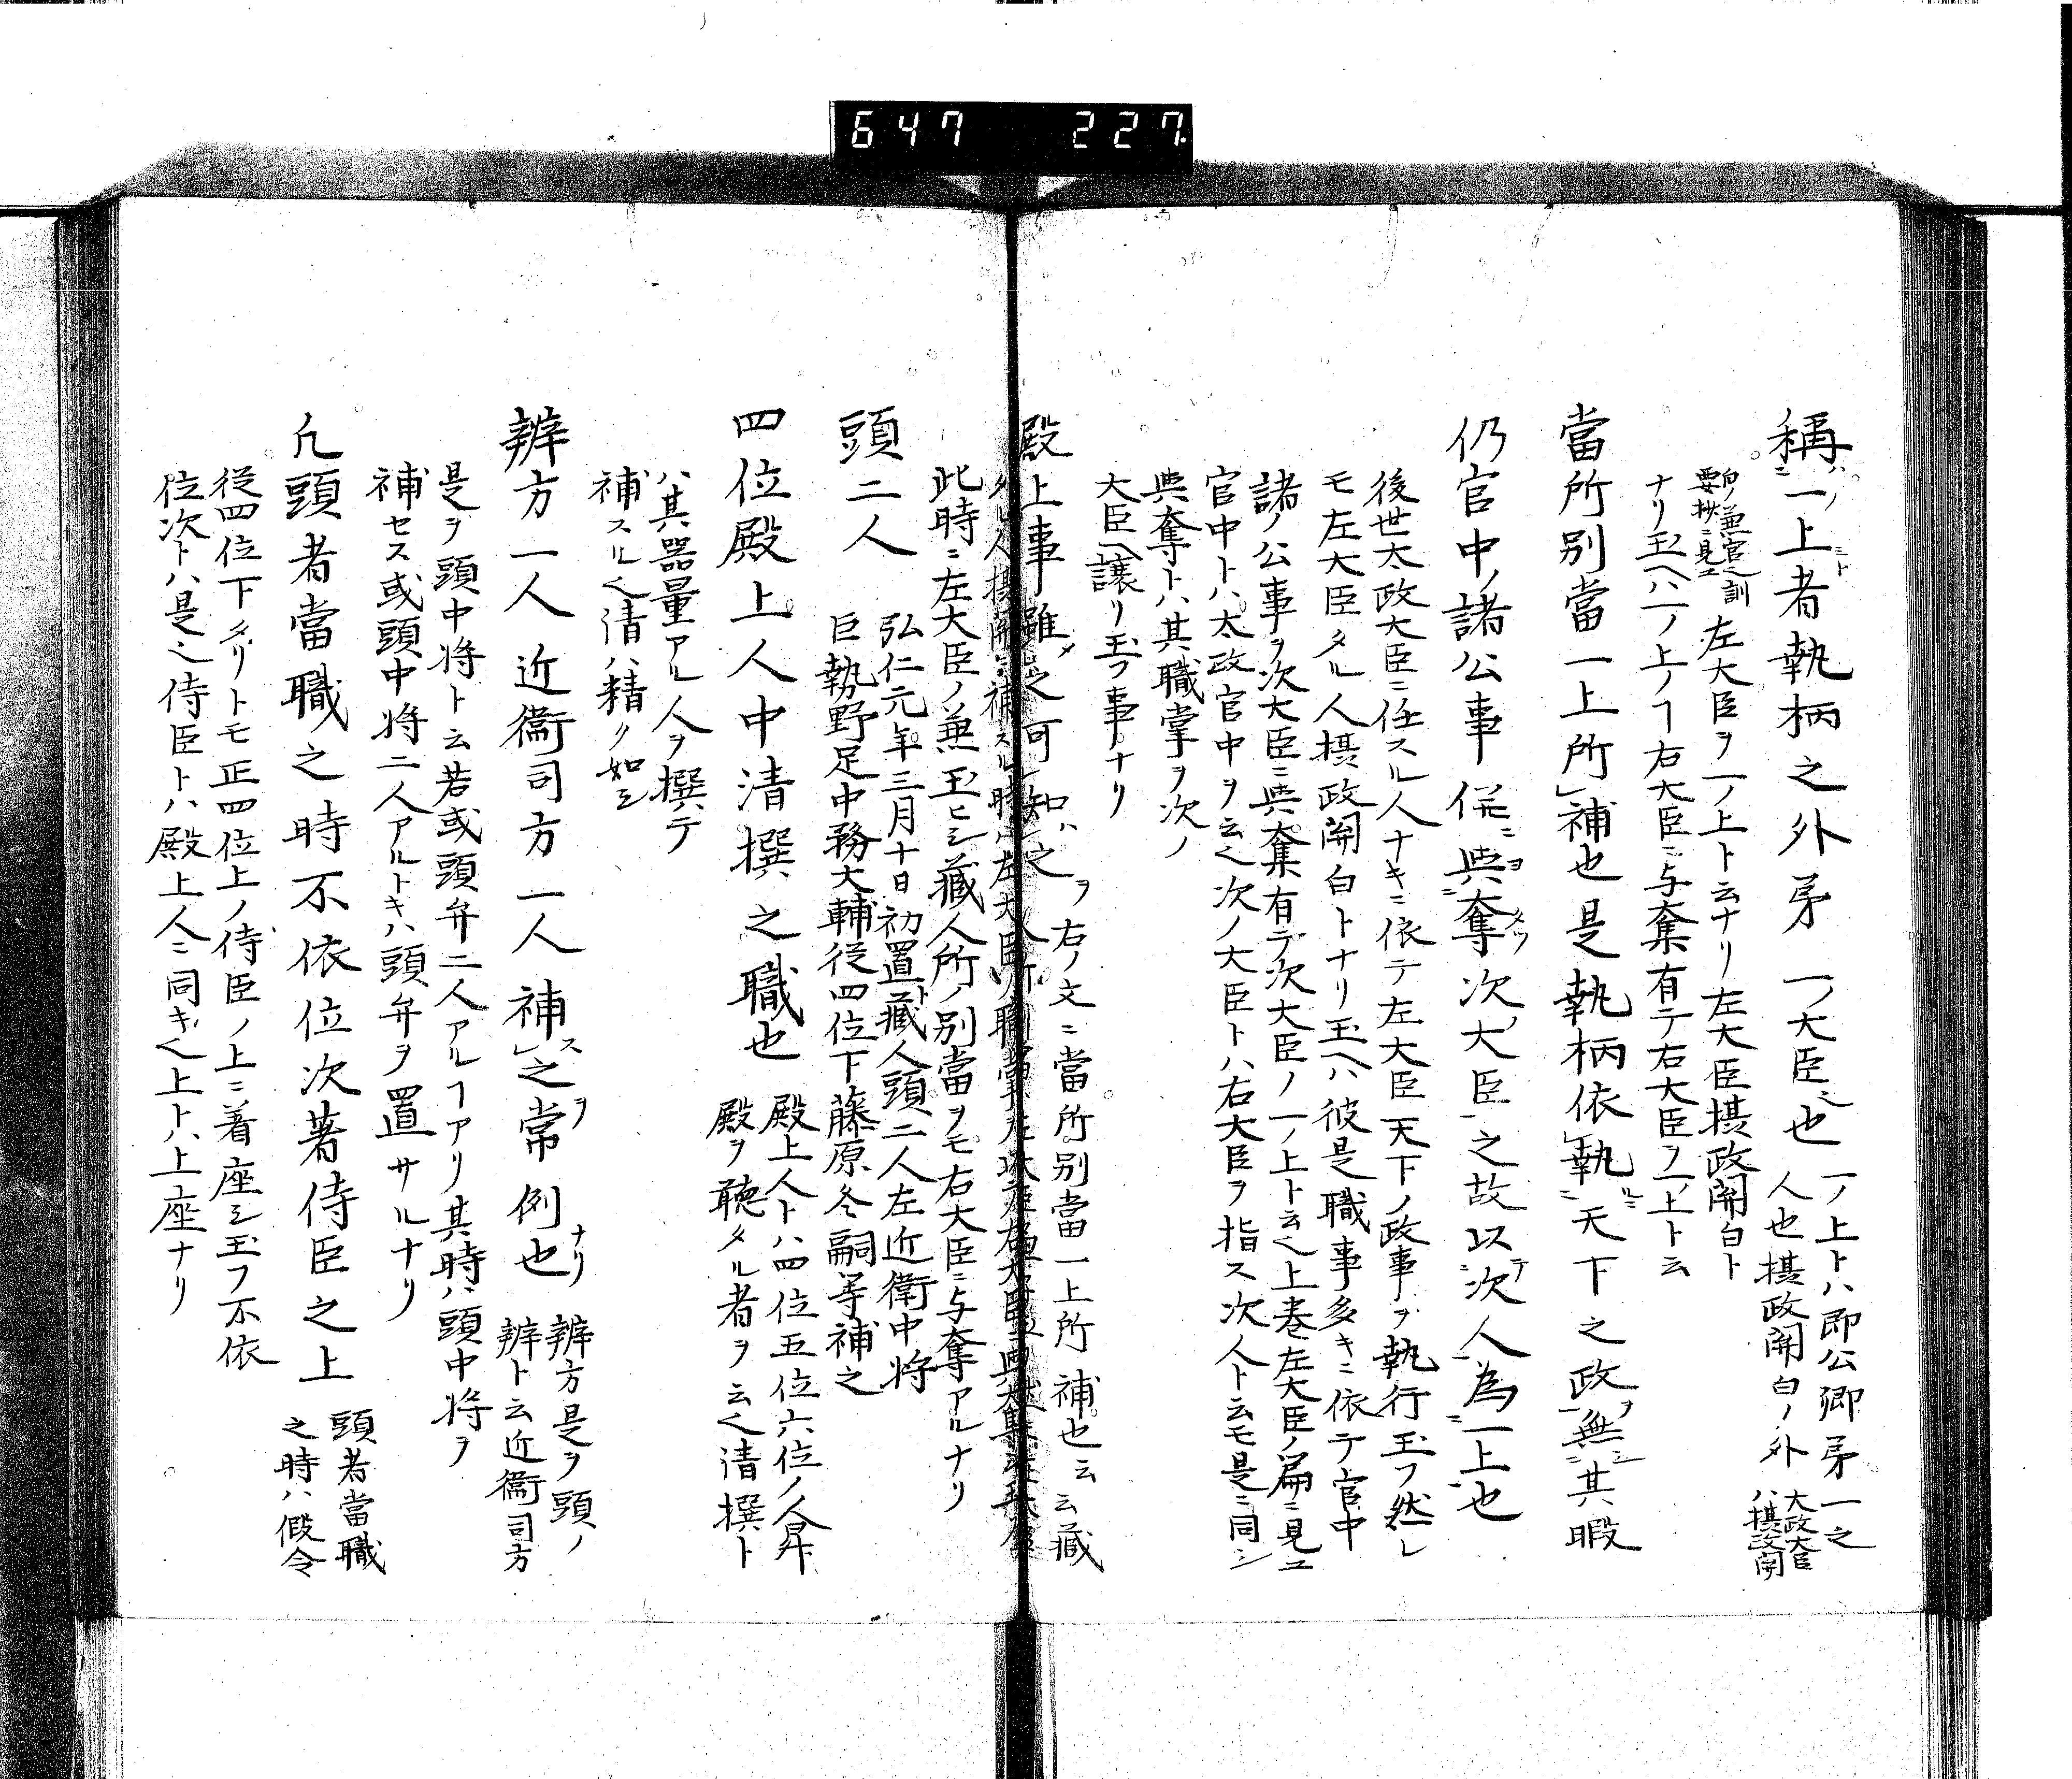 647 227
稱一ノ上者執柄之外苐一ノ大臣也
一ノ上トハ即公卿苐一之
人也摂政関白ノ外
大政大臣
ハ摂政関
白ノ兼官之訓
要抄ニ見エ
左大臣ヲ一ノ上ト云ナリ左大臣摂政関白ト
ナリ玉ヘハ一ノ上ノヿ右大臣ニ与奪有テ右大臣ヲ一ノ上ト云
當所別當一上所補也是執柄依執天下之政無其暇
仍官中ノ諸公事併與奪次ノ大臣之故以次人為一上也
後世太政大臣ニ任スル人ナキニ依テ左大臣天下ノ政事ヲ執行玉フ然レ
モ左大臣タル人摂政関白トナリ玉ヘハ彼是職事多キニ依テ官中
諸ノ公事ヲ次大臣ニ與奪有テ次大臣ノ一ノ上ト云ヘ上巻左大臣ノ篇ニ見エ
官中トハ太政官中ヲ云ヘ次ノ大臣トハ右大臣ヲ指ス次人ト云モ是ニ同シ
與奪トハ其職掌ヲ次ノ
大臣ヘ譲リ玉フ事ナリ
右ノ文ニ當所別當一上所補也云云蔵
殿上事雖之可知之
此時ニ左大臣ノ兼玉ヒシ蔵人所ノ別當ヲモ右大臣ニ与奪アルナリ
頭二人
弘仁元年三月十日初置蔵人頭二人左近衛中将
巨勢野足中務大輔従四位下藤原冬嗣等補之
四位殿上人中清撰之職也
殿上人トハ四位五位六位ノ人昇
殿ヲ聴タル者ヲ云ヘ清撰ト
ハ其器量アル人ヲ撰テ
補スルヘ清ハ精ク如シ
辨方一人近衞司方一人補之常例也
辨方是ヲ頭ノ
辨ト云近衞司方
是ヲ頭中将ト云若或頭弁二人アルヿアリ其時ハ頭中将ヲ
補セス或頭中将二人アルトキハ頭弁ヲ置サルナリ
凢頭者當職之時不依位次著侍臣之上
頭者當職
之時ハ假令
従四位下タリトモ正四位上ノ侍臣ノ上ニ着座シ玉フ不依
位次トハ是ヘ侍臣トハ殿上人ニ同キヘ上トハ上座ナリ